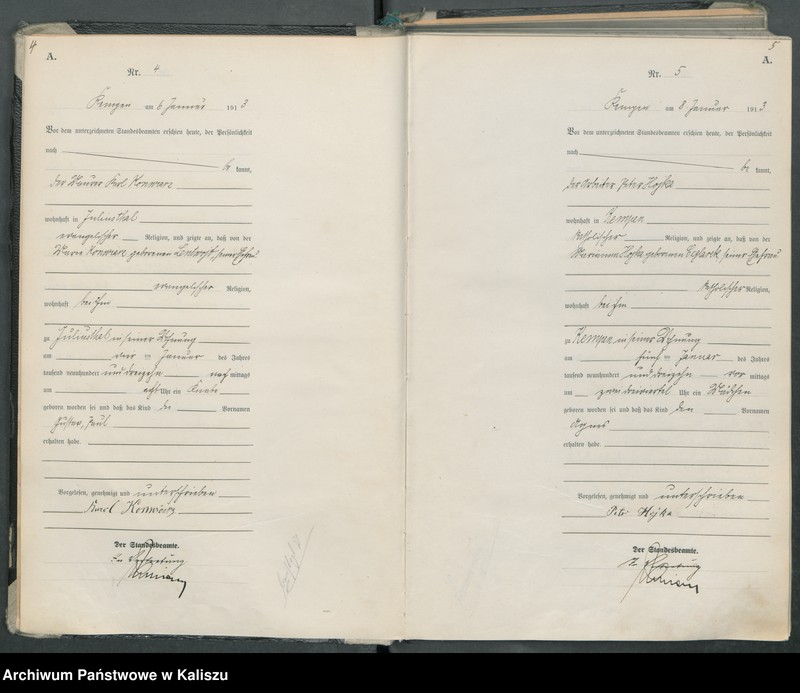 4
A.
Nr. 4
Kempen am 6 Januar 1913
Vor dem unterzeichneten Standesbeamten erschien heute, der Persönlichkeit
nach
be kannt,
der Maurer Karl
wohnhaft in Juliusthal
evangelischer Religion, und zeigte an, daß von der
geborenen seiner Ehefrau
evangelischer Religion,
wohnhaft bei ihm
zu Juliusthal in seiner Wohnung
am vier ten Januar des Jahres
tausend neunhundert und dreizehn nach mittags
um acht Uhr ein Knabe
geboren worden sei und daß das Kind die Vornamen
Gustav, Paul
erhalten habe.
Vorgelesen, genehmigt und unterschrieben
Karl
Der Standesbeamte.
In Vertretung
5
A.
Nr. 5
Kempen am 8 Januar 1913
Vor dem unterzeichneten Standesbeamten erschien heute, der Persönlichkeit
nach
be kannt,
der Arbeiter Peter Hojka
wohnhaft in Kempen
katholischer Religion, und zeigte an, daß von der
Marianna Hojka geborenen seiner Ehefrau
katholischer Religion,
wohnhaft bei ihm
zu Kempen in seiner Wohnung
am fünf ten Januar des Jahres
tausend neunhundert und dreizehn vor mittags
um zwei dreiviertel Uhr ein Mädchen
geboren worden sei und daß das Kind den Vornamen
Agnes
erhalten habe.
Vorgelesen, genehmigt und unterschrieben
Peter Hojka
Der Standesbeamte.
In Vertretung
Archiwum Państwowe w Kaliszu